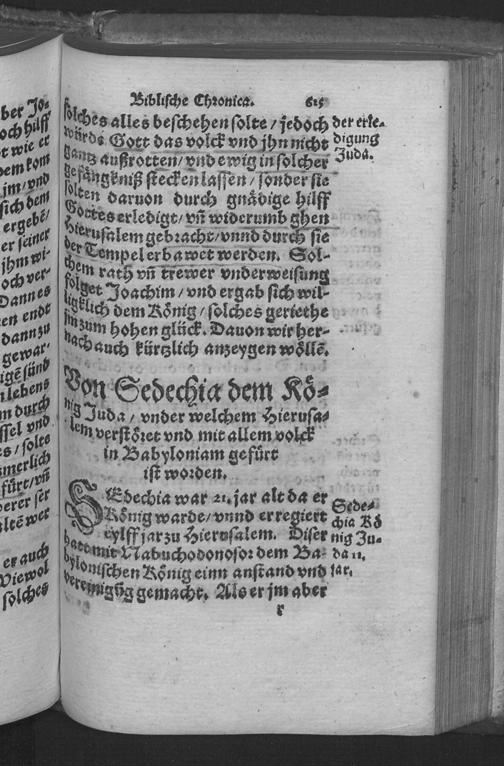 ber Jo-
och hilff
t wie er
dem kom
jm/ vnd
sich dem
ergebẽ/
er seiner
jhm wi-
och ver-
Dann es
en endt
dann zu
gewar-
igẽ sünd
lebens
m durch
ssel vnd
es/ solts
merlich
fürt/ vñ
erer ser
ltẽ wer
er auch
Wiewol
solches
Biblische Chronica. 615
solches alles beschehen solte/ jedoch
würde Gott das volck vnd jhn nicht
gantz außrotten/ vnd ewig in solcher
gefängkniß stecken lassen/ sonder sie
solten daruon durch gnädige hilff
Gottes erledigt/ vñ widerumb ghen
Hierusalem gebracht/ vnnd durch sie
der Tempel erbawet werden. Söl-
chem rath vñ trewer vnderweisung
folget Joachim/ vnd ergab sich wil-
ligklich dem König/ solches geriethe
jm zum hohen glück. Dauon wir her-
nach auch kürtzlich anzeygen wöllẽ.
der erle-
digung
Juda.
Von Sedechia dem Kö-
nig Juda/ vnder welchem Hierusa-
lem verstöret vnd mit allem volck
in Babyloniam gefürt
ist worden.
SEdechia war 21. jar alt da er
König warde/ vnnd er regiert
eylff jar zu Hierusalem. Diser
hatt mit Nabuchodonosor dem Ba-
bylonischen König einn anstand vnd
vereinigũg gemacht. Als er jm aber
Sede-
chia Kö
nig Ju-
da 11.
jar.
r